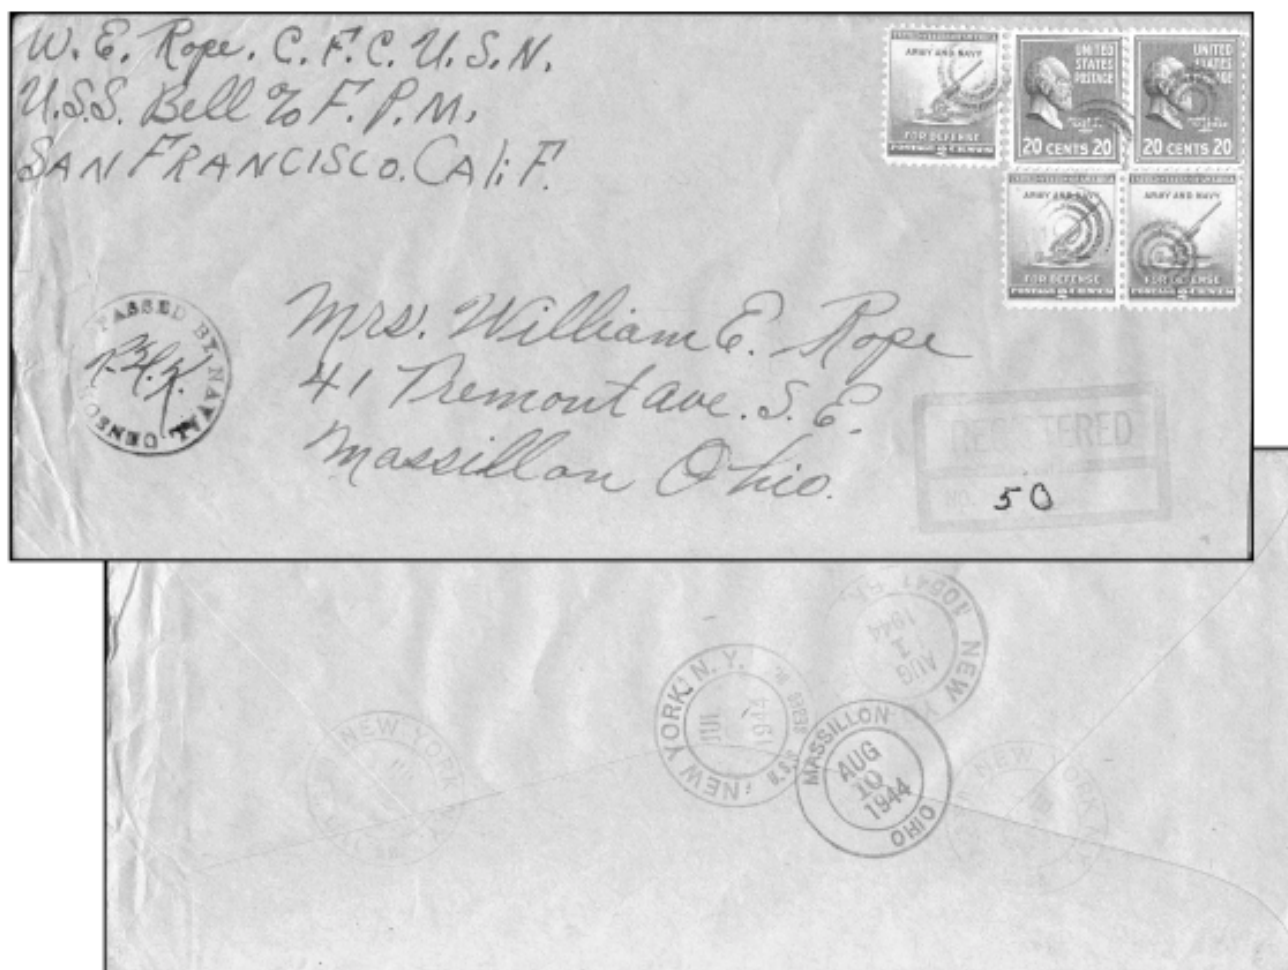 W. E. Rope. C. F. C. U. S. N.
U.S.S. Bell % F. P. M.
SAN FRANCISCO. CAliF.
ARMY AND NAVY
FOR DEFENSE
UNITED
STATES
POSTAGE
20 CENTS 20
UNITED
STATES
POSTAGE
20 CENTS 20
UNITED STATES OF AMERICA
ARMY AND NAVY
FOR DEFENSE
UNITED STATES OF AMERICA
ARMY AND NAVY
FOR DEFENSE
PASSED BY NAVAL CENSOR
Mrs. William E. Rope
41 Tremont ave. S. E.
Massillon Ohio.
REGISTERED
NO. 50
10541
NEW
AUG
1
1944
NEW YORK, N. Y.
JUL
1944
MASSILLON
AUG
10
1944
OHIO
NEW YORK
NEW YORK